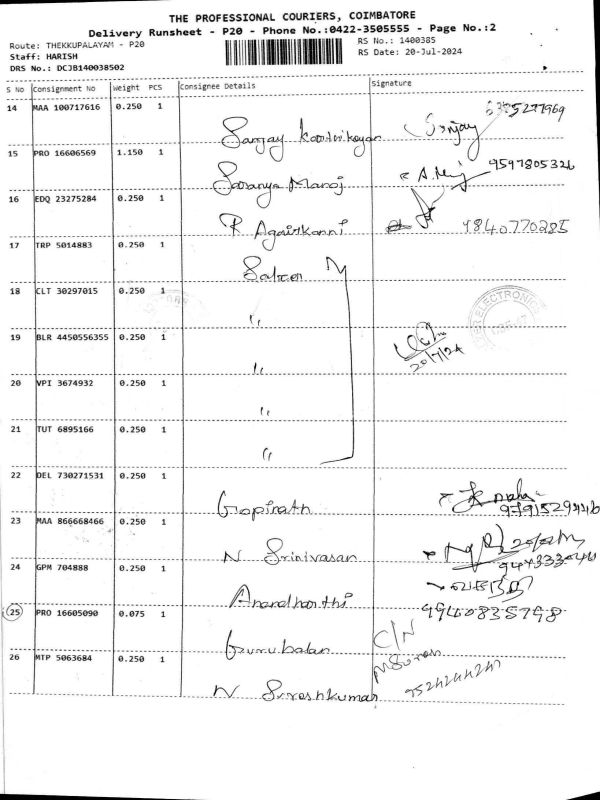 THE PROFESSIONAL COURIERS, COIMBATORE
Delivery Runsheet - P20 - Phone No.:0422-3505555 - Page No.:2
Route: THEKKUPALAYAM - P20
RS No.: 1400385
Staff: HARISH
RS Date: 20-Jul-2024
DRS No.: DCJB140038502
S No Consignment No Weight PCS Consignee Details Signature
14 MAA 100717616 0.250 1
Sanjay
15 PRO 16606569 1.150 1
9597805326
Saranya Manoj
16 EDQ 23275284 0.250 1
R 9840770285
17 TRP 5014883 0.250 1
18 CLT 30297015 0.250 1
ELECTRONICS
"
19 BLR 4450556355 0.250 1
20/7/24
"
20 VPI 3674932 0.250 1
"
21 TUT 6895166 0.250 1
"
22 DEL 730271531 0.250 1
Gopinath
23 MAA 866668466 0.250 1
N Srinivasan
24 GPM 704888 0.250 1
25 PRO 16605090 0.075 1 9940835798
Gurubalan C/N
26 MTP 5063684 0.250 1
N Sureshkumar 9524244247